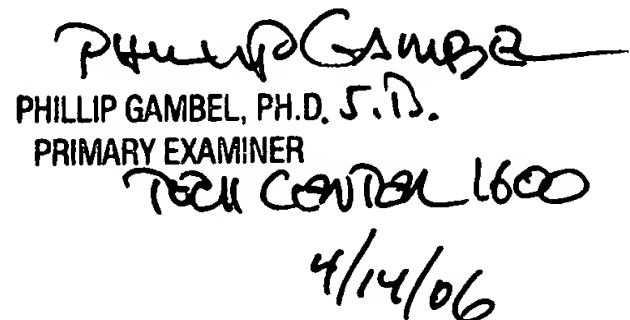 PHILLIP GAMBEL
PHILLIP GAMBEL, PH.D. J.D.
PRIMARY EXAMINER
TECH CENTER 1600
4/14/06